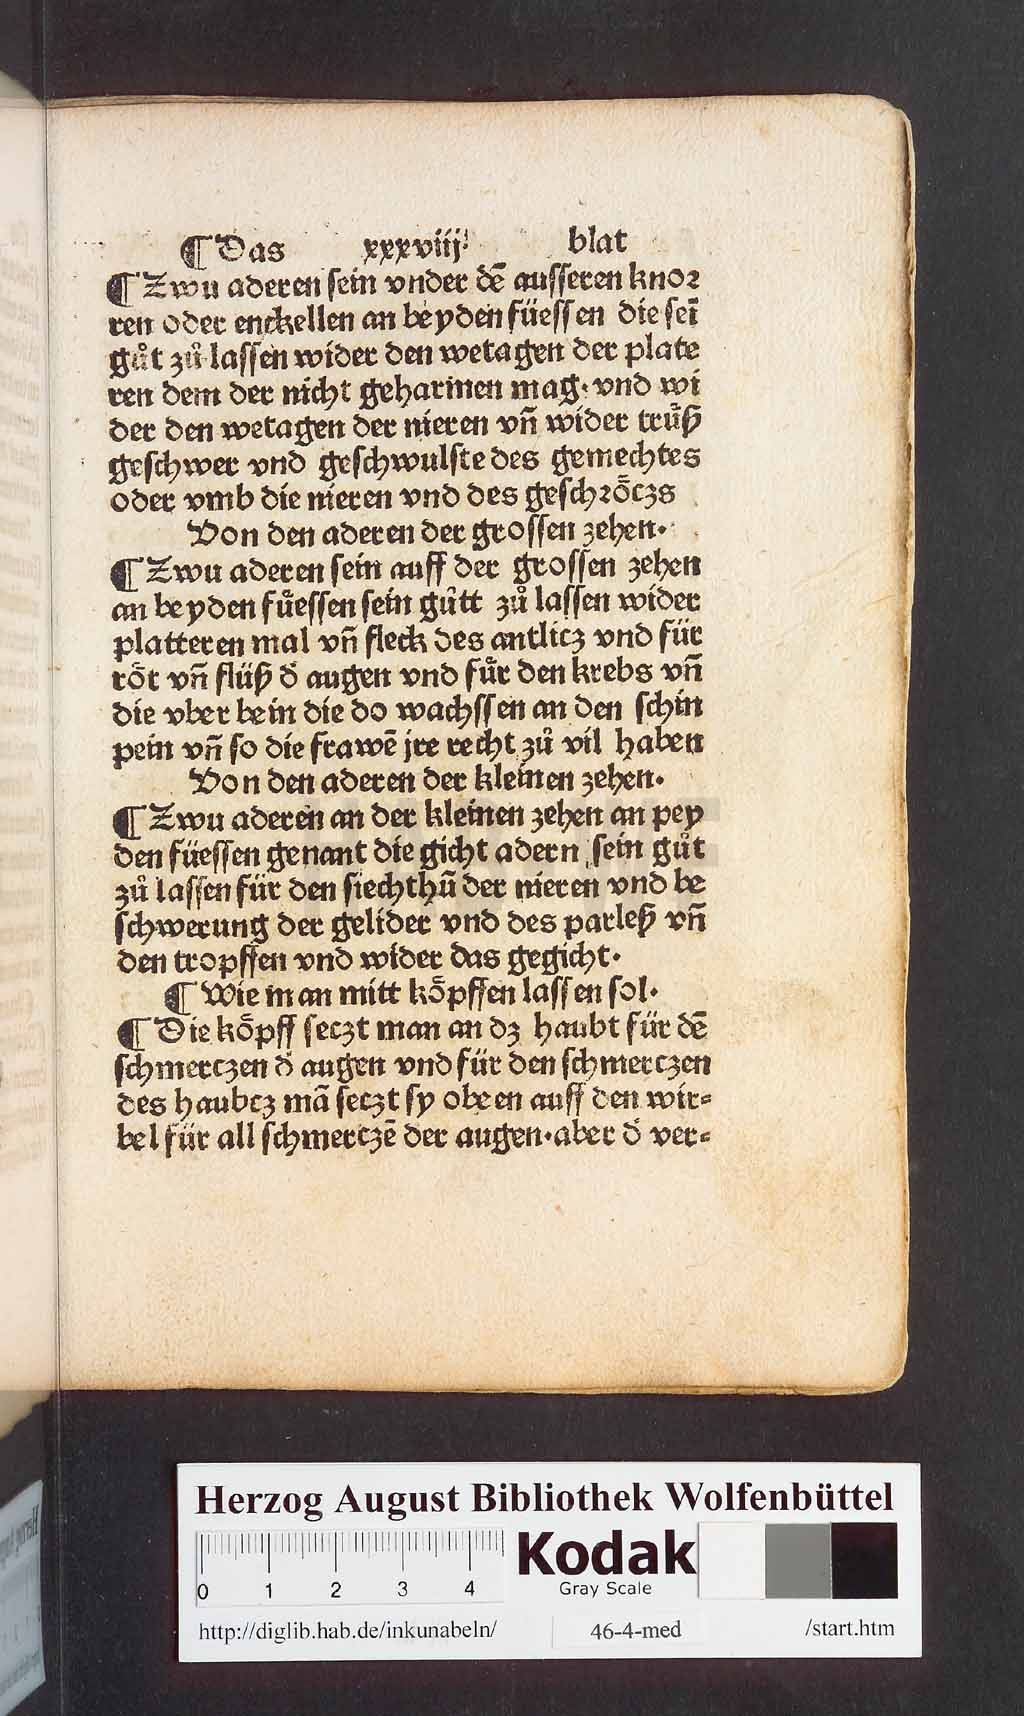 ¶ Das xxxviij. blat
¶ Zwu aderen sein vnder dē ausseren knor
ren oder enckellen an beyden füessen die seī
gůt zů lassen wider den wetagen der plate
ren dem der nicht geharmen mag· vnd wi
der den wetagen der nieren vñ wider trüß
geschwer vnd geschwulste des gemechtes
oder vmb die nieren vnd des geschröczs
Von den aderen der grossen zehen·
¶ Zwu aderen sein auff der grossen zehen
an beyden füessen sein gůtt zů lassen wider
platteren mal vñ fleck des antlicz vnd für
röt vñ flüß d̕ augen vnd für den krebs vñ
die vber bein die do wachssen an den schin
pein vñ so die frawē jre recht zů vil haben
Von den aderen der kleinen zehen·
¶ Zwu aderen an der kleinen zehen an pey
den füessen genant die gicht adern sein gůt
zů lassen für den siechthū der nieren vnd be
schwerung der gelider vnd des parleß vñ
den tropffen vnd wider das gegicht·
¶ Wie man mitt köpffen lassen sol·
¶ Die köpff seczt man an dz haubt für dē
schmerczen d̕ augen vnd für den schmerczen
des haubcz mā seczt sy oben auff den wir⸗
bel für all schmerczē der augen·aber d̕ ver⸗
Herzog August Bibliothek Wolfenbüttel
0 1 2 3 4
Kodak
Gray Scale
http://diglib.hab.de/inkunabeln/ 46-4-med /start.htm